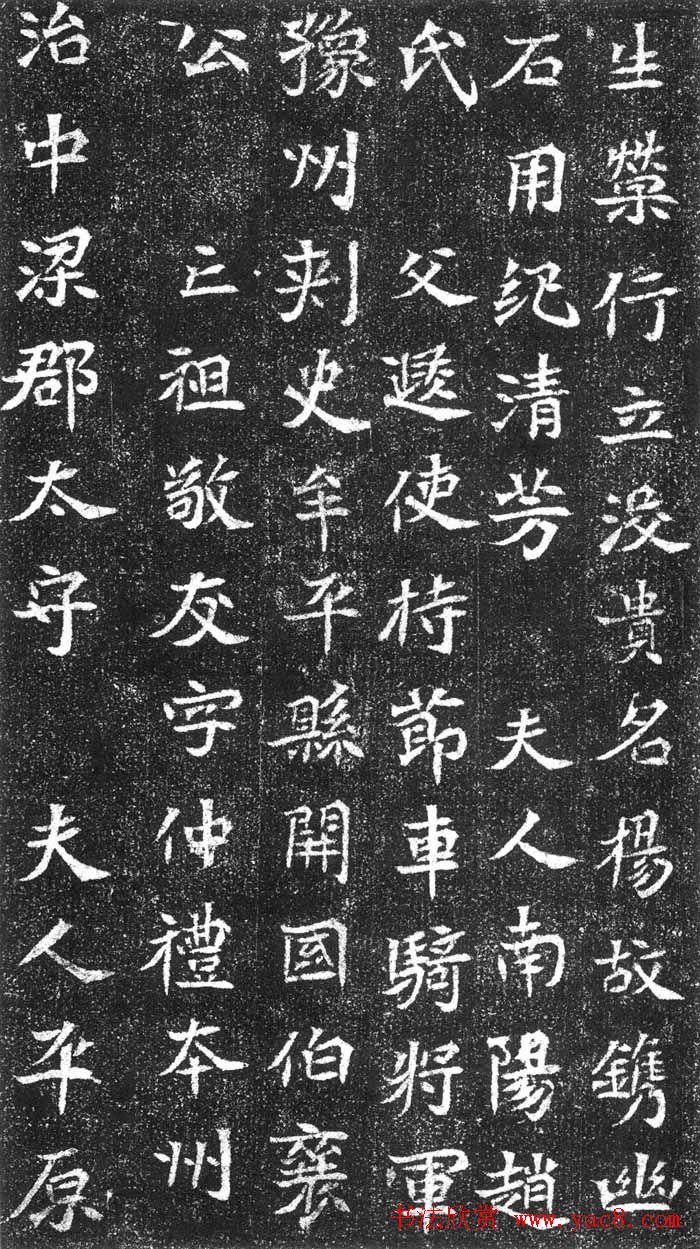 生榮行立没貴名楊故鐫幽
石用紀清芳　夫人南陽趙
氏　父使持節車騎將軍
豫州刺史牟平縣開國伯襄
公　亡祖敬友字仲禮本州
治中梁郡太守　夫人平原
书法欣赏 www.yac8.com